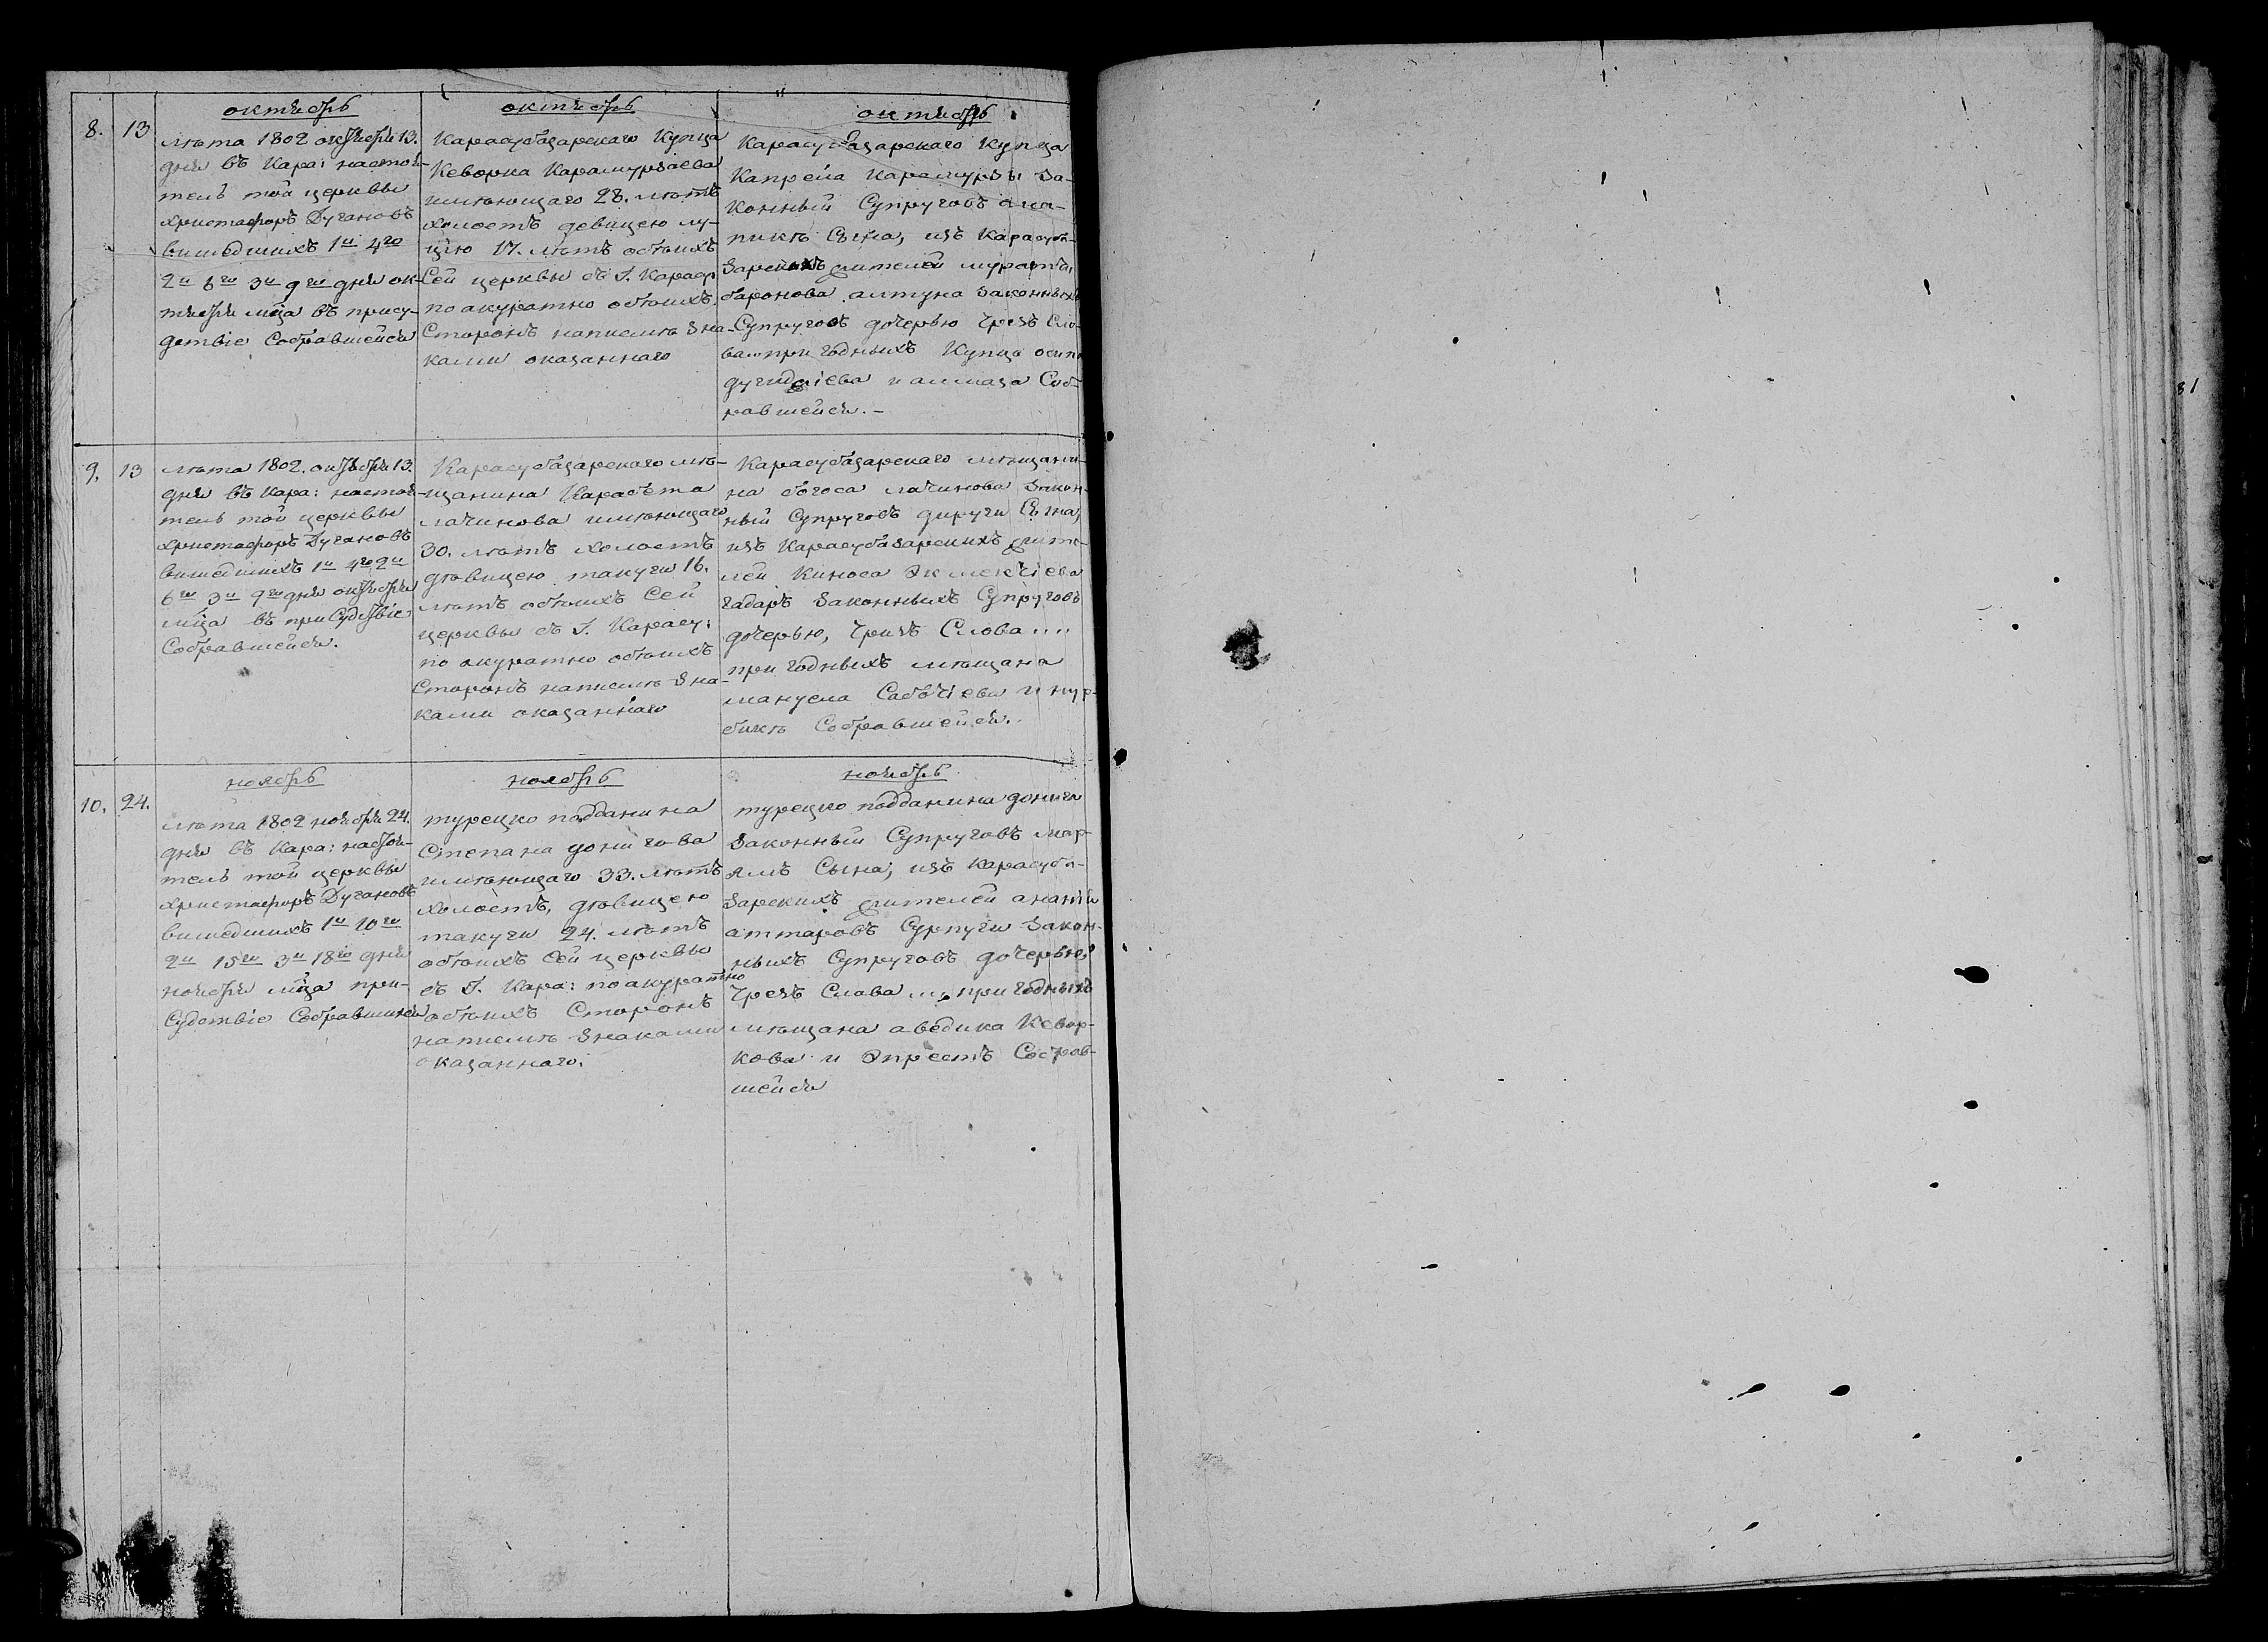 октябрь
8. 13
лѣта 1802 октября 13.
дня въ Кара: настоя-
тель той церквы
христафоръ Дугановъ
вишедшихъ 1и 4го
2и 6го 3и 9го дня ок-
тября мца въ прису-
дствіе Собравшейся
октябрь
Карасубазарскаго Купца
Кеворка Карамурзаева
имеющаго 28. лѣтъ
холостъ девицею лу-
цію 17. лѣтъ обѣихъ
Сей церквы съ Г. Карасу
по акуратно обѣихъ
Сторонъ написмѣ зна-
ками оказаннаго
октябрь
Карасубазарскаго Купца
Капрела Карамурзы за-
конный Супруговъ
Сына, изъ Карасуба-
зарскихъ жителей мурата
баронова алтуна законныхъ
Супруговъ дочерью чрезъ Сло-
ва пригодныхъ Купца осипа
и алмаза Соб-
равшейся.-
9. 13
лѣта 1802. октября 13.
дня въ Кара: настоя-
тель той церквы
христафоръ Дугановъ
вишедшихъ 1и 4го 2и
6го 3и 9го дня октября
мца въ присудствіе
Собравшейся.
Карасубазарскаго мѣ-
щанина Карабета
лачинова имѣющаго
30. лѣтъ холостъ
дѣвицею такуги 16.
лѣтъ обѣихъ Сей
церквы съ Г. Карасу:
по акуратно обѣихъ
Сторонъ написмѣ зна-
ками оказаннаго
Карасубазарскаго мѣщани-
на богоса лачинова закон-
ный Супруговъ дируги Сына,
изъ Карасубазарскихъ жите-
лей Киноса Экмекчіева
гадаръ законныхъ Супруговъ
дочерью, чризъ Слова....
при годныхъ мѣщана
мануела и нур-
бикѣ Собравшейся.
10. 24.
ноябрь
лѣта 1802 ноября 24.
дня въ Кара: настоя-
тель той церквы
христафоръ Дугановъ
вишедшихъ 1и 10го
2и 15го 3и 18го дня
ноября мца при-
Судствіе Собравшейся
ноябрь
турецко подданина
Степана донигова
имѣющаго 33. лѣтъ
холостъ, дѣвицею
такуги 24. лѣтъ
обѣихъ Сей церквы
съ Г. Кара: по акуратно
обѣихъ Сторонъ
написмѣ знаками
оказаннаго:
ноябрь
турецко подданина донига
законный Супруговъ мар-
ямъ Сына; изъ Карасуба-
зарскихъ жителей ананія
аттаровъ Сурпуги закон-
ныхъ Супруговъ дочерью,
чрезъ Слава ... при годныхъ
мѣщана аведика Кевор-
кова и Эпрестъ Собрав-
шейся
81